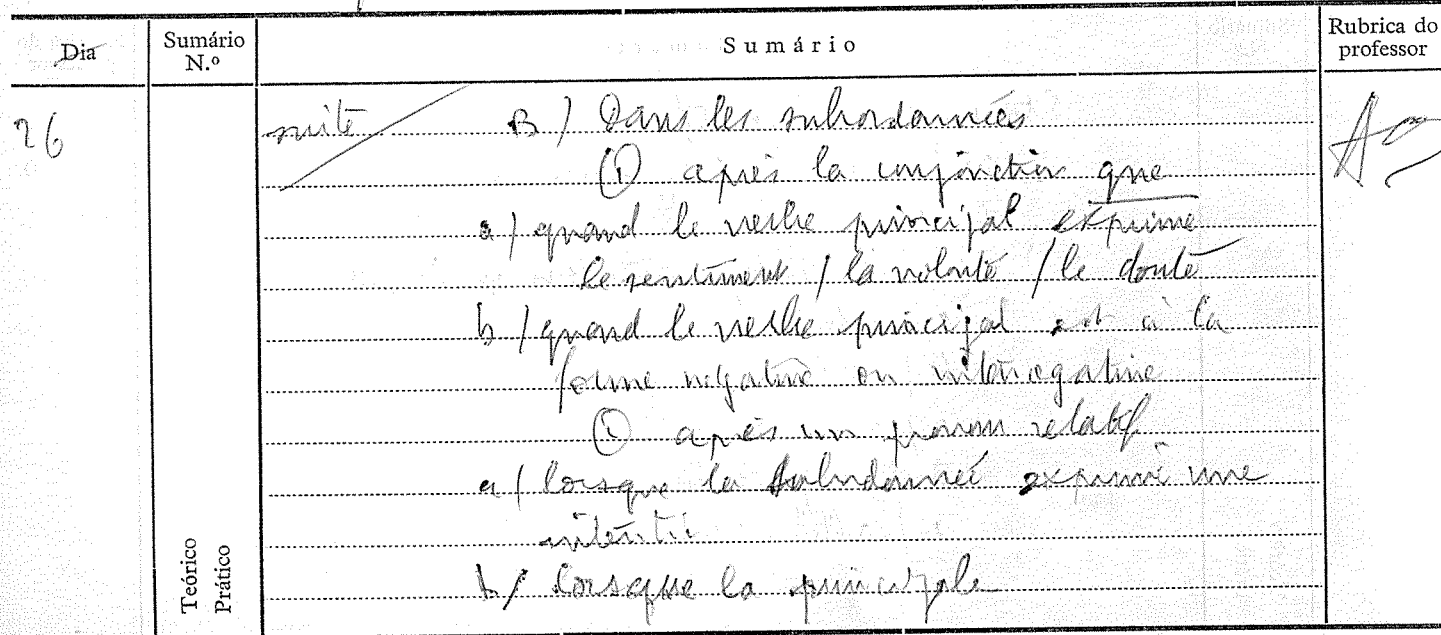 Dia Sumário N.º Sumário Rubrica do professor
26 suite B) Dans les subordonnées
① après la conjonction que
a/ quand le verbe principal exprime
le sentiment / la volonté / le doute
b/ quand le verbe principal est à la
forme négative ou interrogative
① après un pronom relatif
a/ lorsque la subordonnée exprime une
b/ lorsque la principale
Teórico
Prático